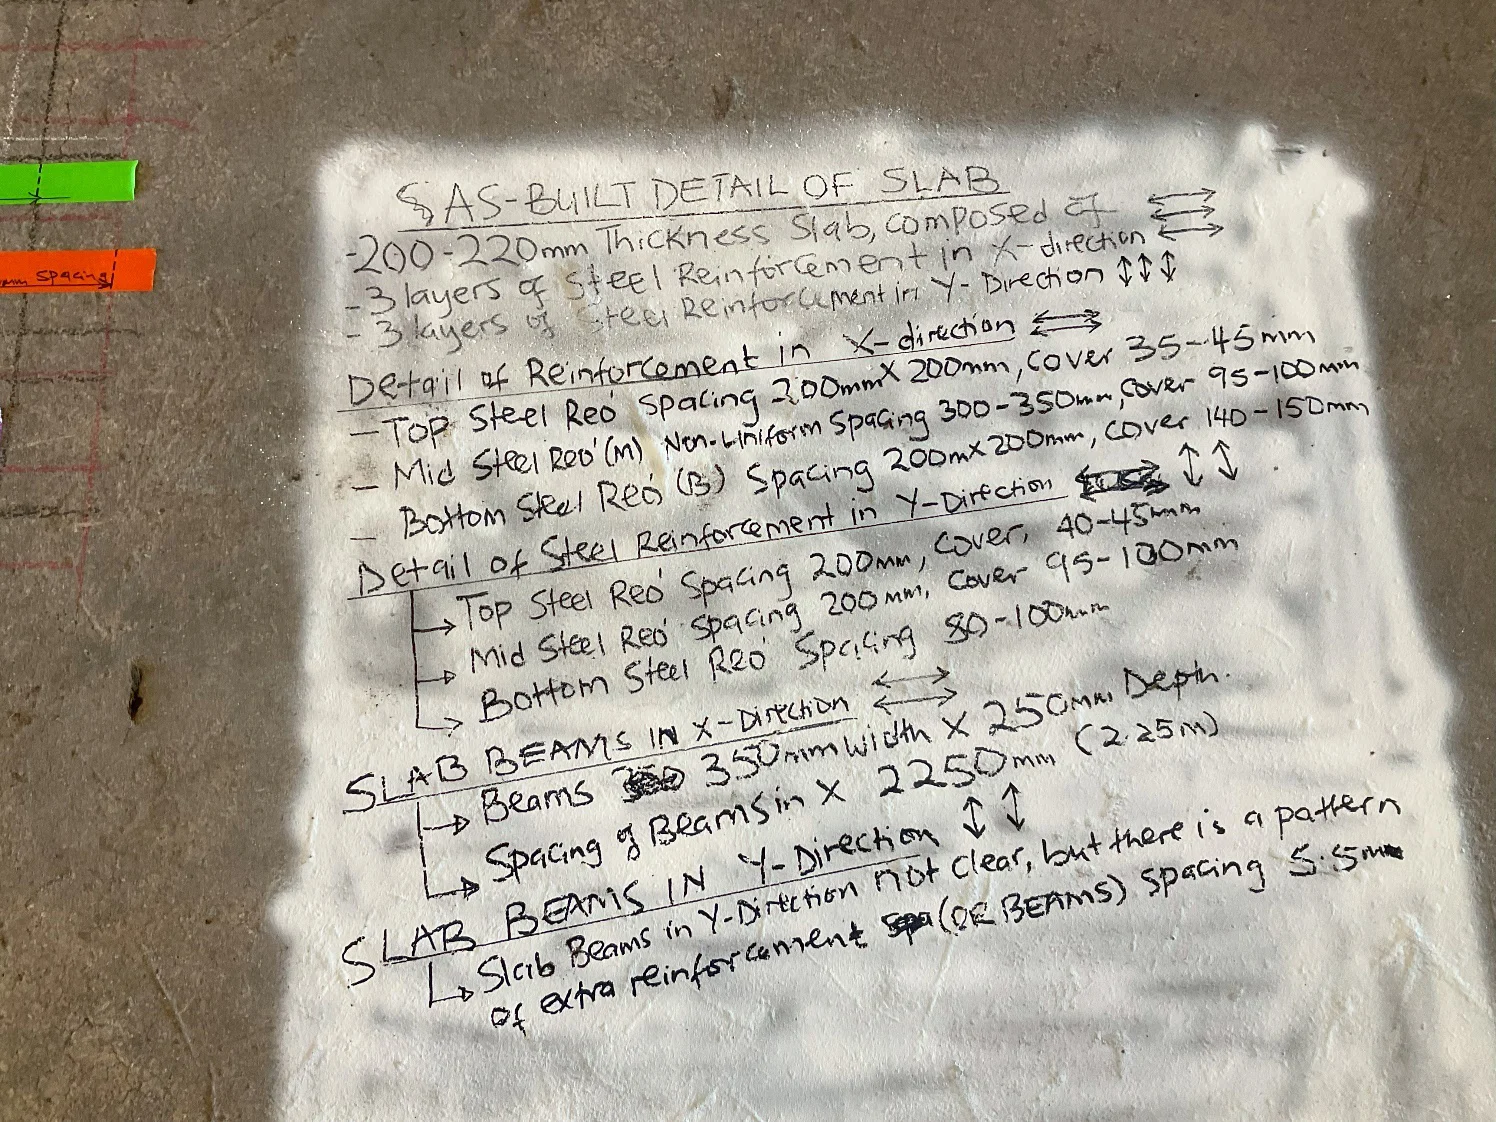 mm spacing
AS-BUILT DETAIL OF SLAB
-200-220mm Thickness Slab, composed of
-3 layers of Steel Reinforcement in X-direction
- 3 layers of Steel Reinforcement in Y-Direction
Detail of Reinforcement in X-direction
- Top Steel Reo' spacing 200mm X 200mm, cover 35-45mm
- Mid Steel Reo' (M) Non-Uniform Spacing 300-350mm, cover 95-100mm
- Bottom Steel Reo' (B) Spacing 200mX200mm, cover 140-150mm
Detail of Steel Reinforcement in Y-Direction
Top Steel Reo' Spacing 200mm, cover, 40-45mm
Mid Steel Reo' Spacing 200mm, cover 95-100mm
Bottom Steel Reo' Spacing 80-100mm
SLAB BEAMS IN X-Direction
Beams 350mm width X 250mm Depth.
Spacing of Beams in X 2250mm (2.25m)
SLAB BEAMS IN Y-Direction
Slab Beams in Y-Direction not clear, but there is a pattern
of extra reinforcement (OR BEAMS) spacing 5.5m